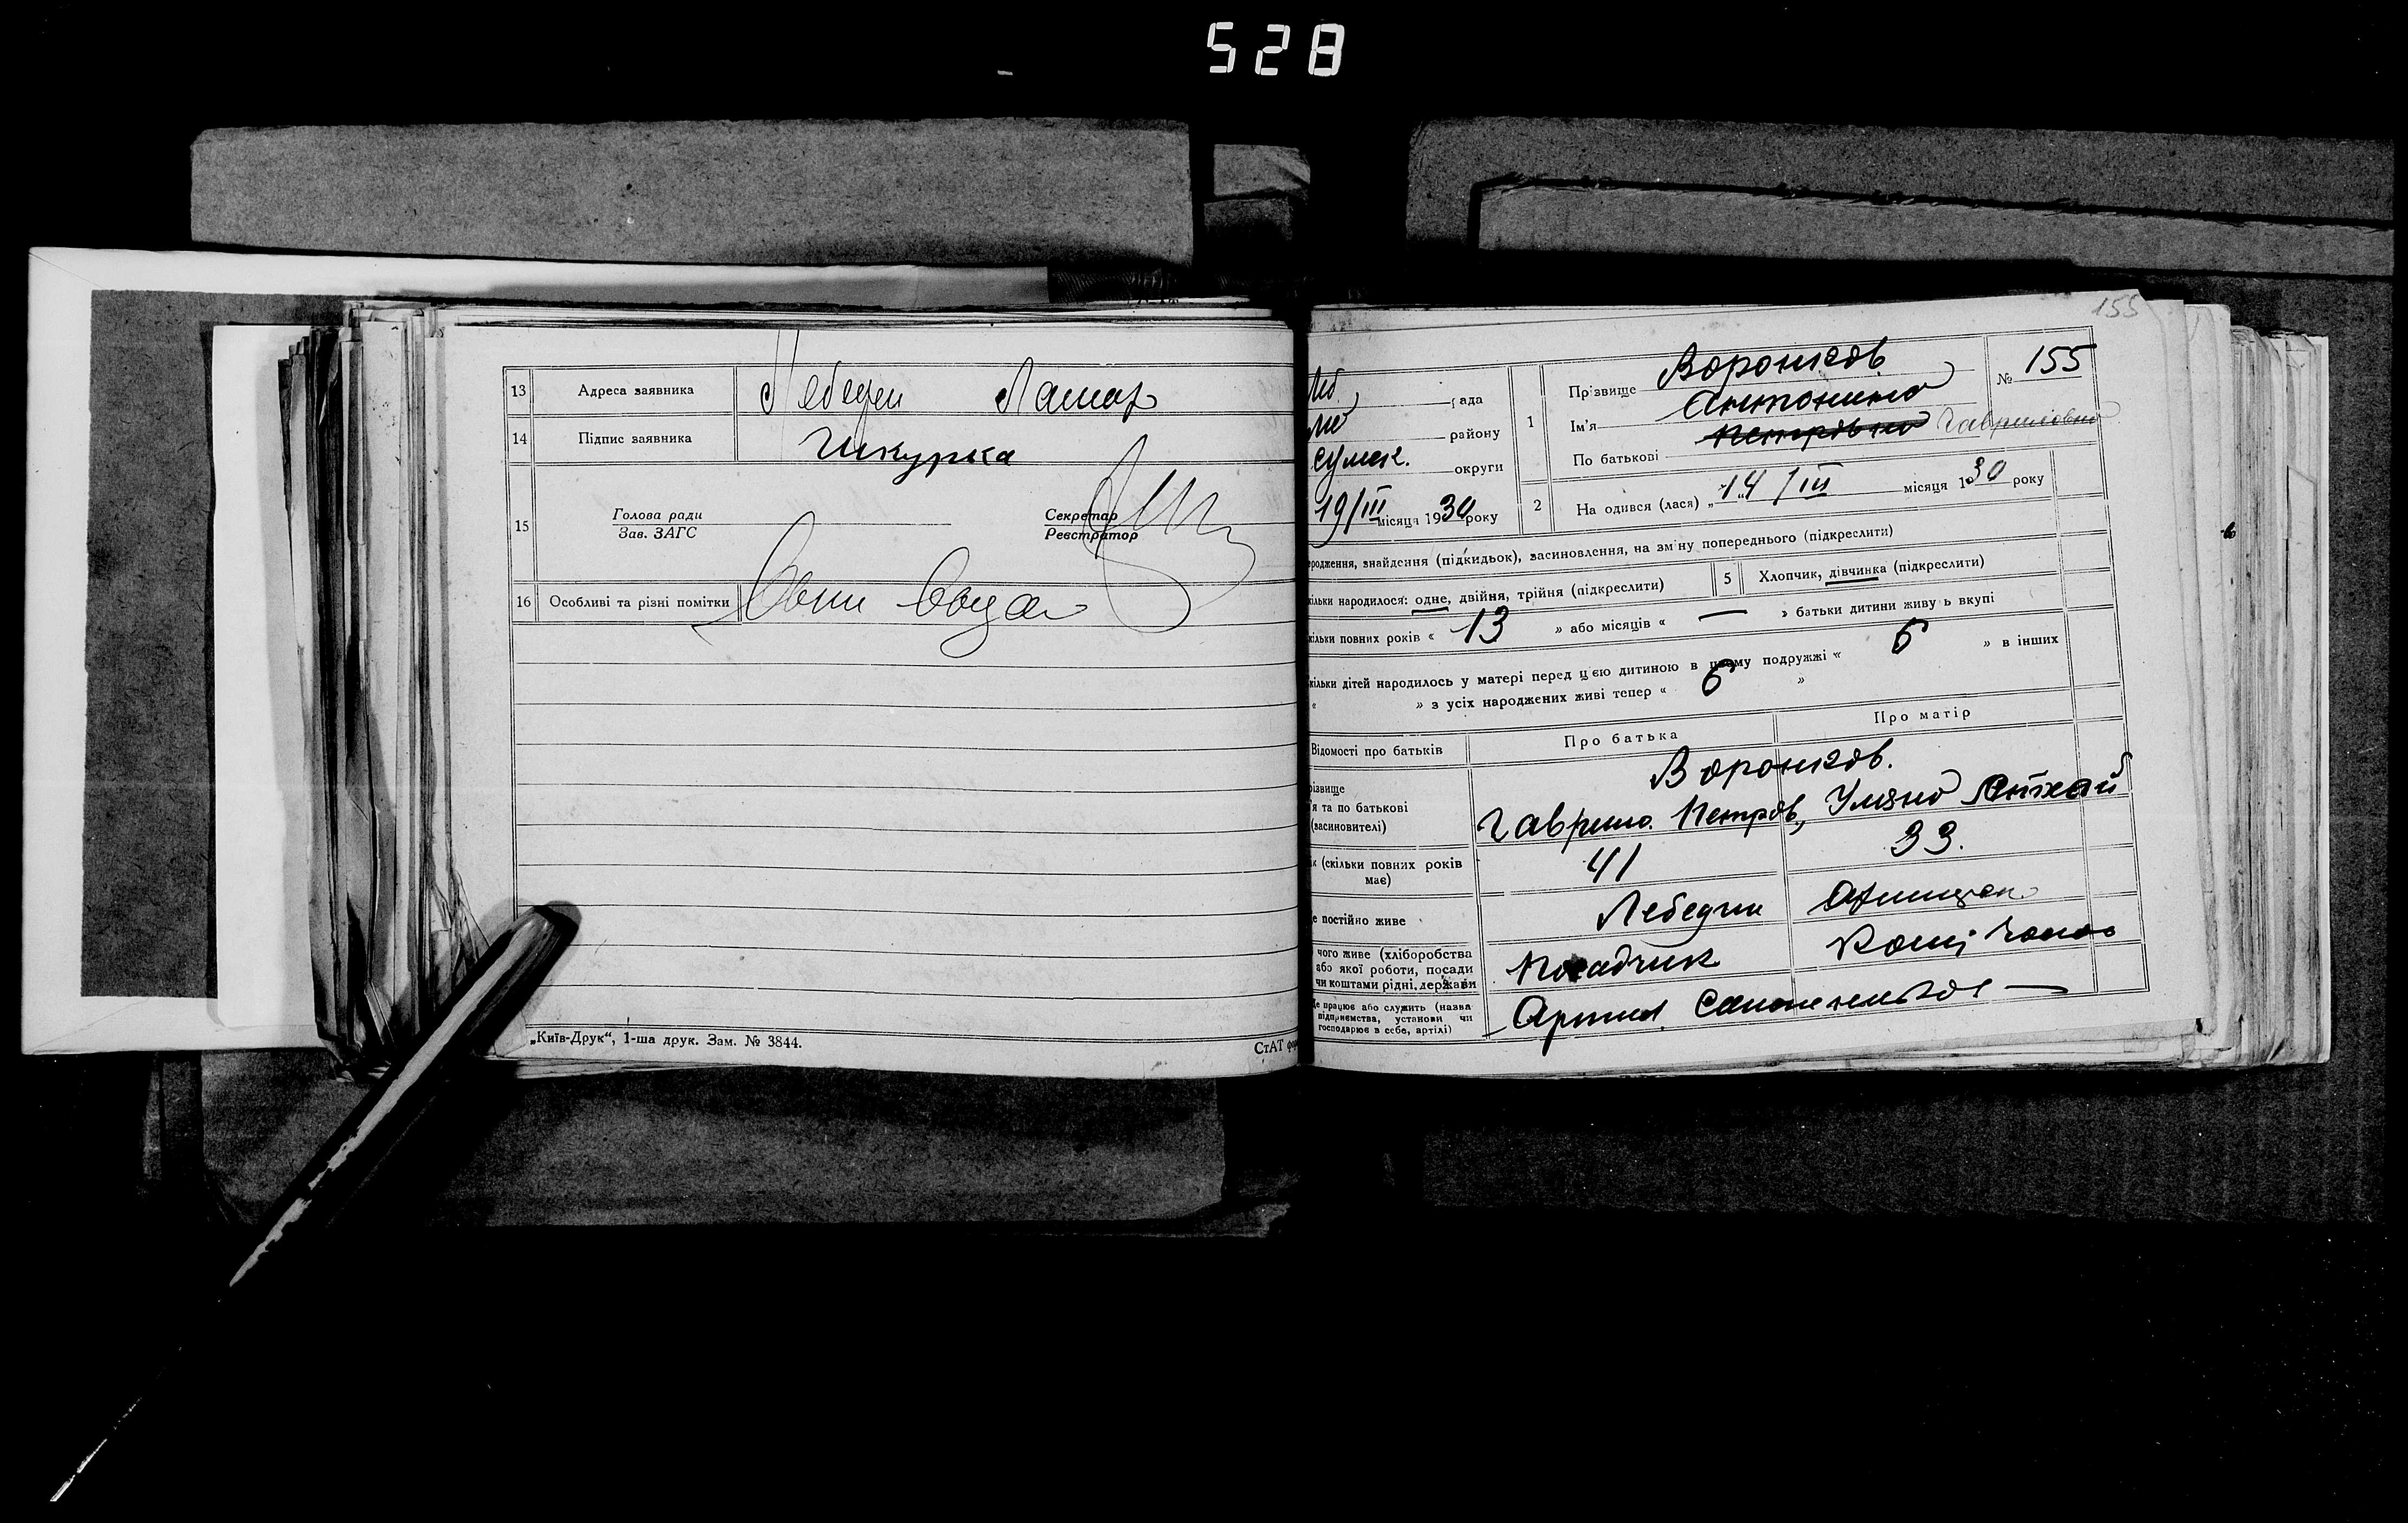 528
13 Адреса заявника Лебедин
14 Підпис заявника Шкурка
15 Голова ради
Зав. ЗАГС
Секретар
Реєстратор
16 Особливі та різні помітки
„Київ-Друк“, 1-ша друк. Зам. № 3844.
СтАТ
155
Леб. рада
району
Сумск. округи
19/III місяця 1930 року
1 Прізвище Воронков № 155
Ім'я Антонина
По батькові Петровна Гавриловна
2 На одився (лася) „14/III місяця 1930 року
родження, знайдення (підкидьок), засиновлення, на зміну попереднього (підкреслити)
кільки народилося: одне, двійня, трійня (підкреслити) 5 Хлопчик, дівчинка (підкреслити)
кільки повних років « 13 » або місяців « — » батьки дитини живуь вкупі
кільки дітей народилось у матері перед цією дитиною в цьому подружжі « 6 » в інших
« » з усіх народжених живі тепер « 6 »
Відомості про батьків Про батька Про матір
різвище
'я та по батькові
(засиновителі)
Воронков.
Гаврило Петров,
ік (скільки повних років
має)
41 33.
е постійно живе Лебедин
чого живе (хліборобства
або якої роботи, посади
чи коштами рідні, держави
Посадчик
Де працює або служить (назва
підприємства, установи чи
господарює в себе, артілі)
—